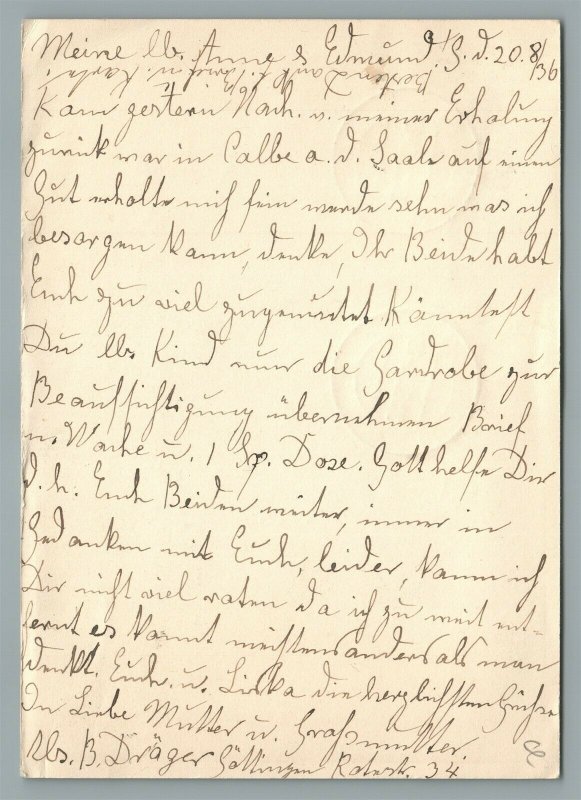 Meine lb. Anne & Edmund! G. d. 20.8/36
Besten Dank f. Brief u. Karte
Kam gestern Nach. v. meiner Erholung
zurück war in Calbe a. d. Saale auf einen
Gut erholte mich fein werde sehn was ich
besorgen kann, denke, Ihr Beide habt
Euch zu viel zugemutet Könntest
Du lb. Kind nur die Gardrobe zur
Beaufsichtigung übernehmen Brief
u. Woche u. 1 Dose. Gott helfe Dir
d. h. Euch Beiden weiter, immer in
Gedanken mit Euch, leider, kann ich
Dir nicht viel raten da ich zu weit ent-
fernt es kommt meistens anders als man
denkt. Euch u. die herzlichsten Grüße
In Liebe Mutter u. Großmutter
Abs. B. Dräger Göttingen Rotestr. 34